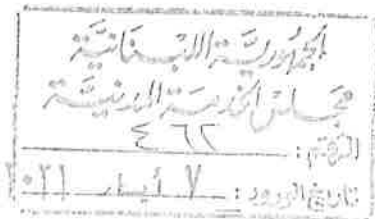 الجمهورية اللبنانية
مجلس الخدمة المدنية
الرقم: ٤٦٢
تاريخ الورود: ٧ أيار ٢٠٢١